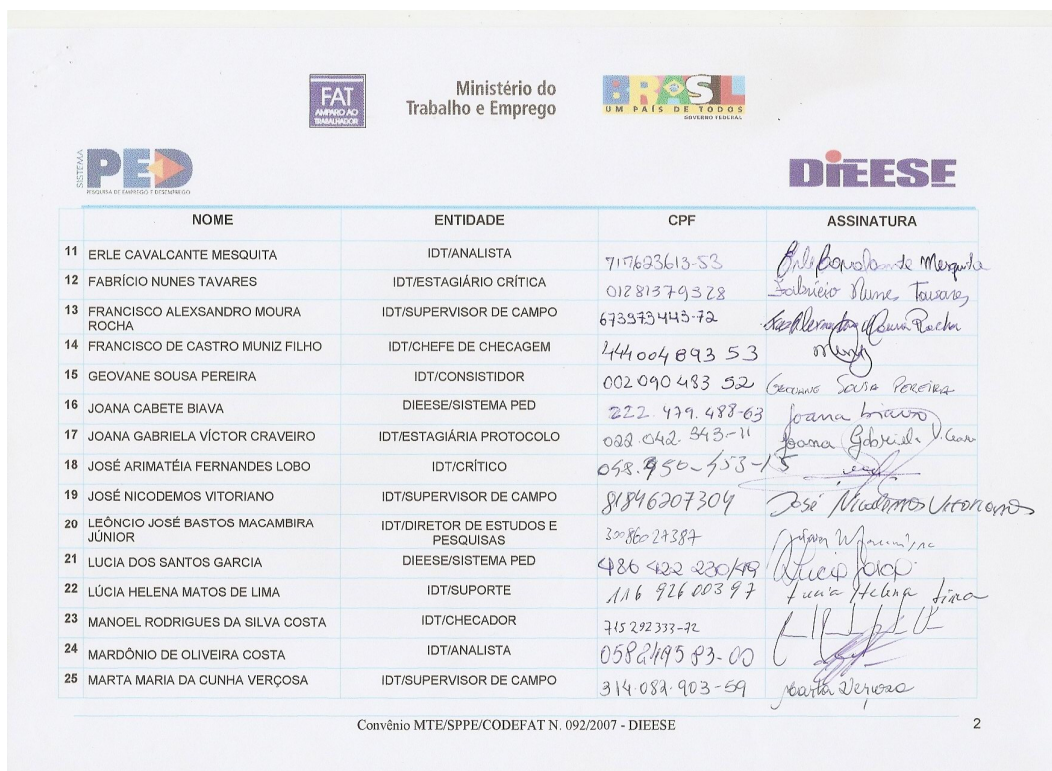 FAT
AMPARO AO
TRABALHADOR
Ministério do
Trabalho e Emprego
BRASIL
UM PAÍS DE TODOS
GOVERNO FEDERAL
SISTEMA
PED
PESQUISA DE EMPREGO E DESEMPREGO
DIEESE
NOME ENTIDADE CPF ASSINATURA
11 ERLE CAVALCANTE MESQUITA IDT/ANALISTA 717623613-53 Erle Cavalcante Mesquita
12 FABRÍCIO NUNES TAVARES IDT/ESTAGIÁRIO CRÍTICA 01281379328 Fabrício Nunes Tavares
13 FRANCISCO ALEXSANDRO MOURA IDT/SUPERVISOR DE CAMPO 673973443-72 Moura Rocha
ROCHA
14 FRANCISCO DE CASTRO MUNIZ FILHO IDT/CHEFE DE CHECAGEM 444004893 53 Muniz
15 GEOVANE SOUSA PEREIRA IDT/CONSISTIDOR 002 090 483 52 GEOVANE SOUSA PEREIRA
16 JOANA CABETE BIAVA DIEESE/SISTEMA PED 222.479.488-63 Joana Biava
17 JOANA GABRIELA VÍCTOR CRAVEIRO IDT/ESTAGIÁRIA PROTOCOLO 022.042.343-11 Joana Gabriela V.
18 JOSÉ ARIMATÉIA FERNANDES LOBO IDT/CRÍTICO
19 JOSÉ NICODEMOS VITORIANO IDT/SUPERVISOR DE CAMPO 81846207304 José Nicodemos Vitoriano
20 LEÔNCIO JOSÉ BASTOS MACAMBIRA IDT/DIRETOR DE ESTUDOS E 30086027387
JÚNIOR PESQUISAS
21 LUCIA DOS SANTOS GARCIA DIEESE/SISTEMA PED 486 422 230/49
22 LÚCIA HELENA MATOS DE LIMA IDT/SUPORTE 116 926 003 97 Lucia Helena Lima
23 MANOEL RODRIGUES DA SILVA COSTA IDT/CHECADOR 715292333-72
24 MARDÔNIO DE OLIVEIRA COSTA IDT/ANALISTA
25 MARTA MARIA DA CUNHA VERÇOSA IDT/SUPERVISOR DE CAMPO 314.082.903-59 Marta Verçosa
Convênio MTE/SPPE/CODEFAT N. 092/2007 - DIEESE 2